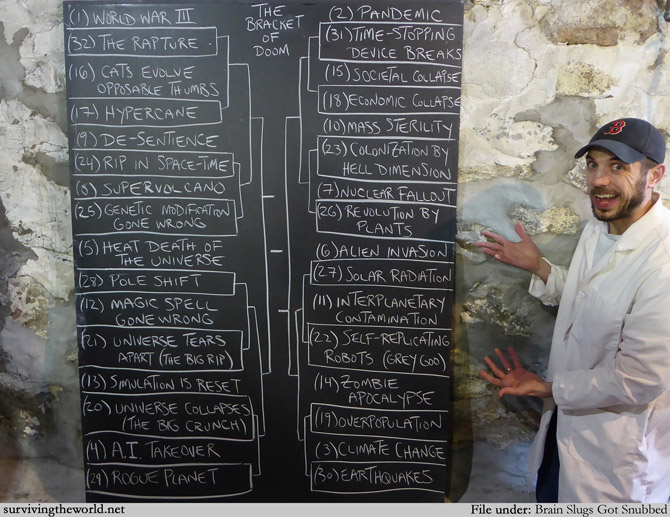 THE
BRACKET
OF
DOOM
(1) WORLD WAR III
(32) THE RAPTURE
(16) CATS EVOLVE
OPPOSABLE THUMBS
(17) HYPERCANE
(9) DE-SENTIENCE
(24) RIP IN SPACE-TIME
(8) SUPERVOLCANO
(25) GENETIC MODIFICATION
GONE WRONG
(5) HEAT DEATH OF
THE UNIVERSE
(28) POLE SHIFT
(12) MAGIC SPELL
GONE WRONG
(21) UNIVERSE TEARS
APART (THE BIG RIP)
(13) SIMULATION IS RESET
(20) UNIVERSE COLLAPSES
(THE BIG CRUNCH)
(4) A.I. TAKEOVER
(29) ROGUE PLANET
(2) PANDEMIC
(31) TIME-STOPPING
DEVICE BREAKS
(15) SOCIETAL COLLAPSE
(18) ECONOMIC COLLAPSE
(10) MASS STERILITY
(23) COLONIZATION BY
HELL DIMENSION
(7) NUCLEAR FALLOUT
(26) REVOLUTION BY
PLANTS
(6) ALIEN INVASION
(27) SOLAR RADIATION
(11) INTERPLANETARY
CONTAMINATION
(22) SELF-REPLICATING
ROBOTS (GREY GOO)
(14) ZOMBIE
APOCALYPSE
(19) OVERPOPULATION
(3) CLIMATE CHANGE
(30) EARTHQUAKES
B
survivingtheworld.net
File under: Brain Slugs Got Snubbed